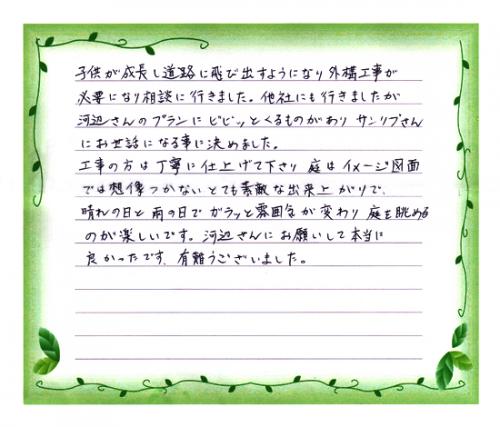 子供が成長し道路に飛び出すようになり外構工事が
必要になり相談に行きました。他社にも行きましたが
河辺さんのプランにビビッとくるものがあり サンリブさん
にお世話になる事に決めました。
工事の方は丁寧に仕上げて下さり 庭はイメージ図面
では想像つかないとても素敵な出来上がりで、
晴れの日と雨の日でガラッと雰囲気が変わり 庭を眺める
のが楽しいです。河辺さんにお願いして本当に
良かったです、有難うございました。